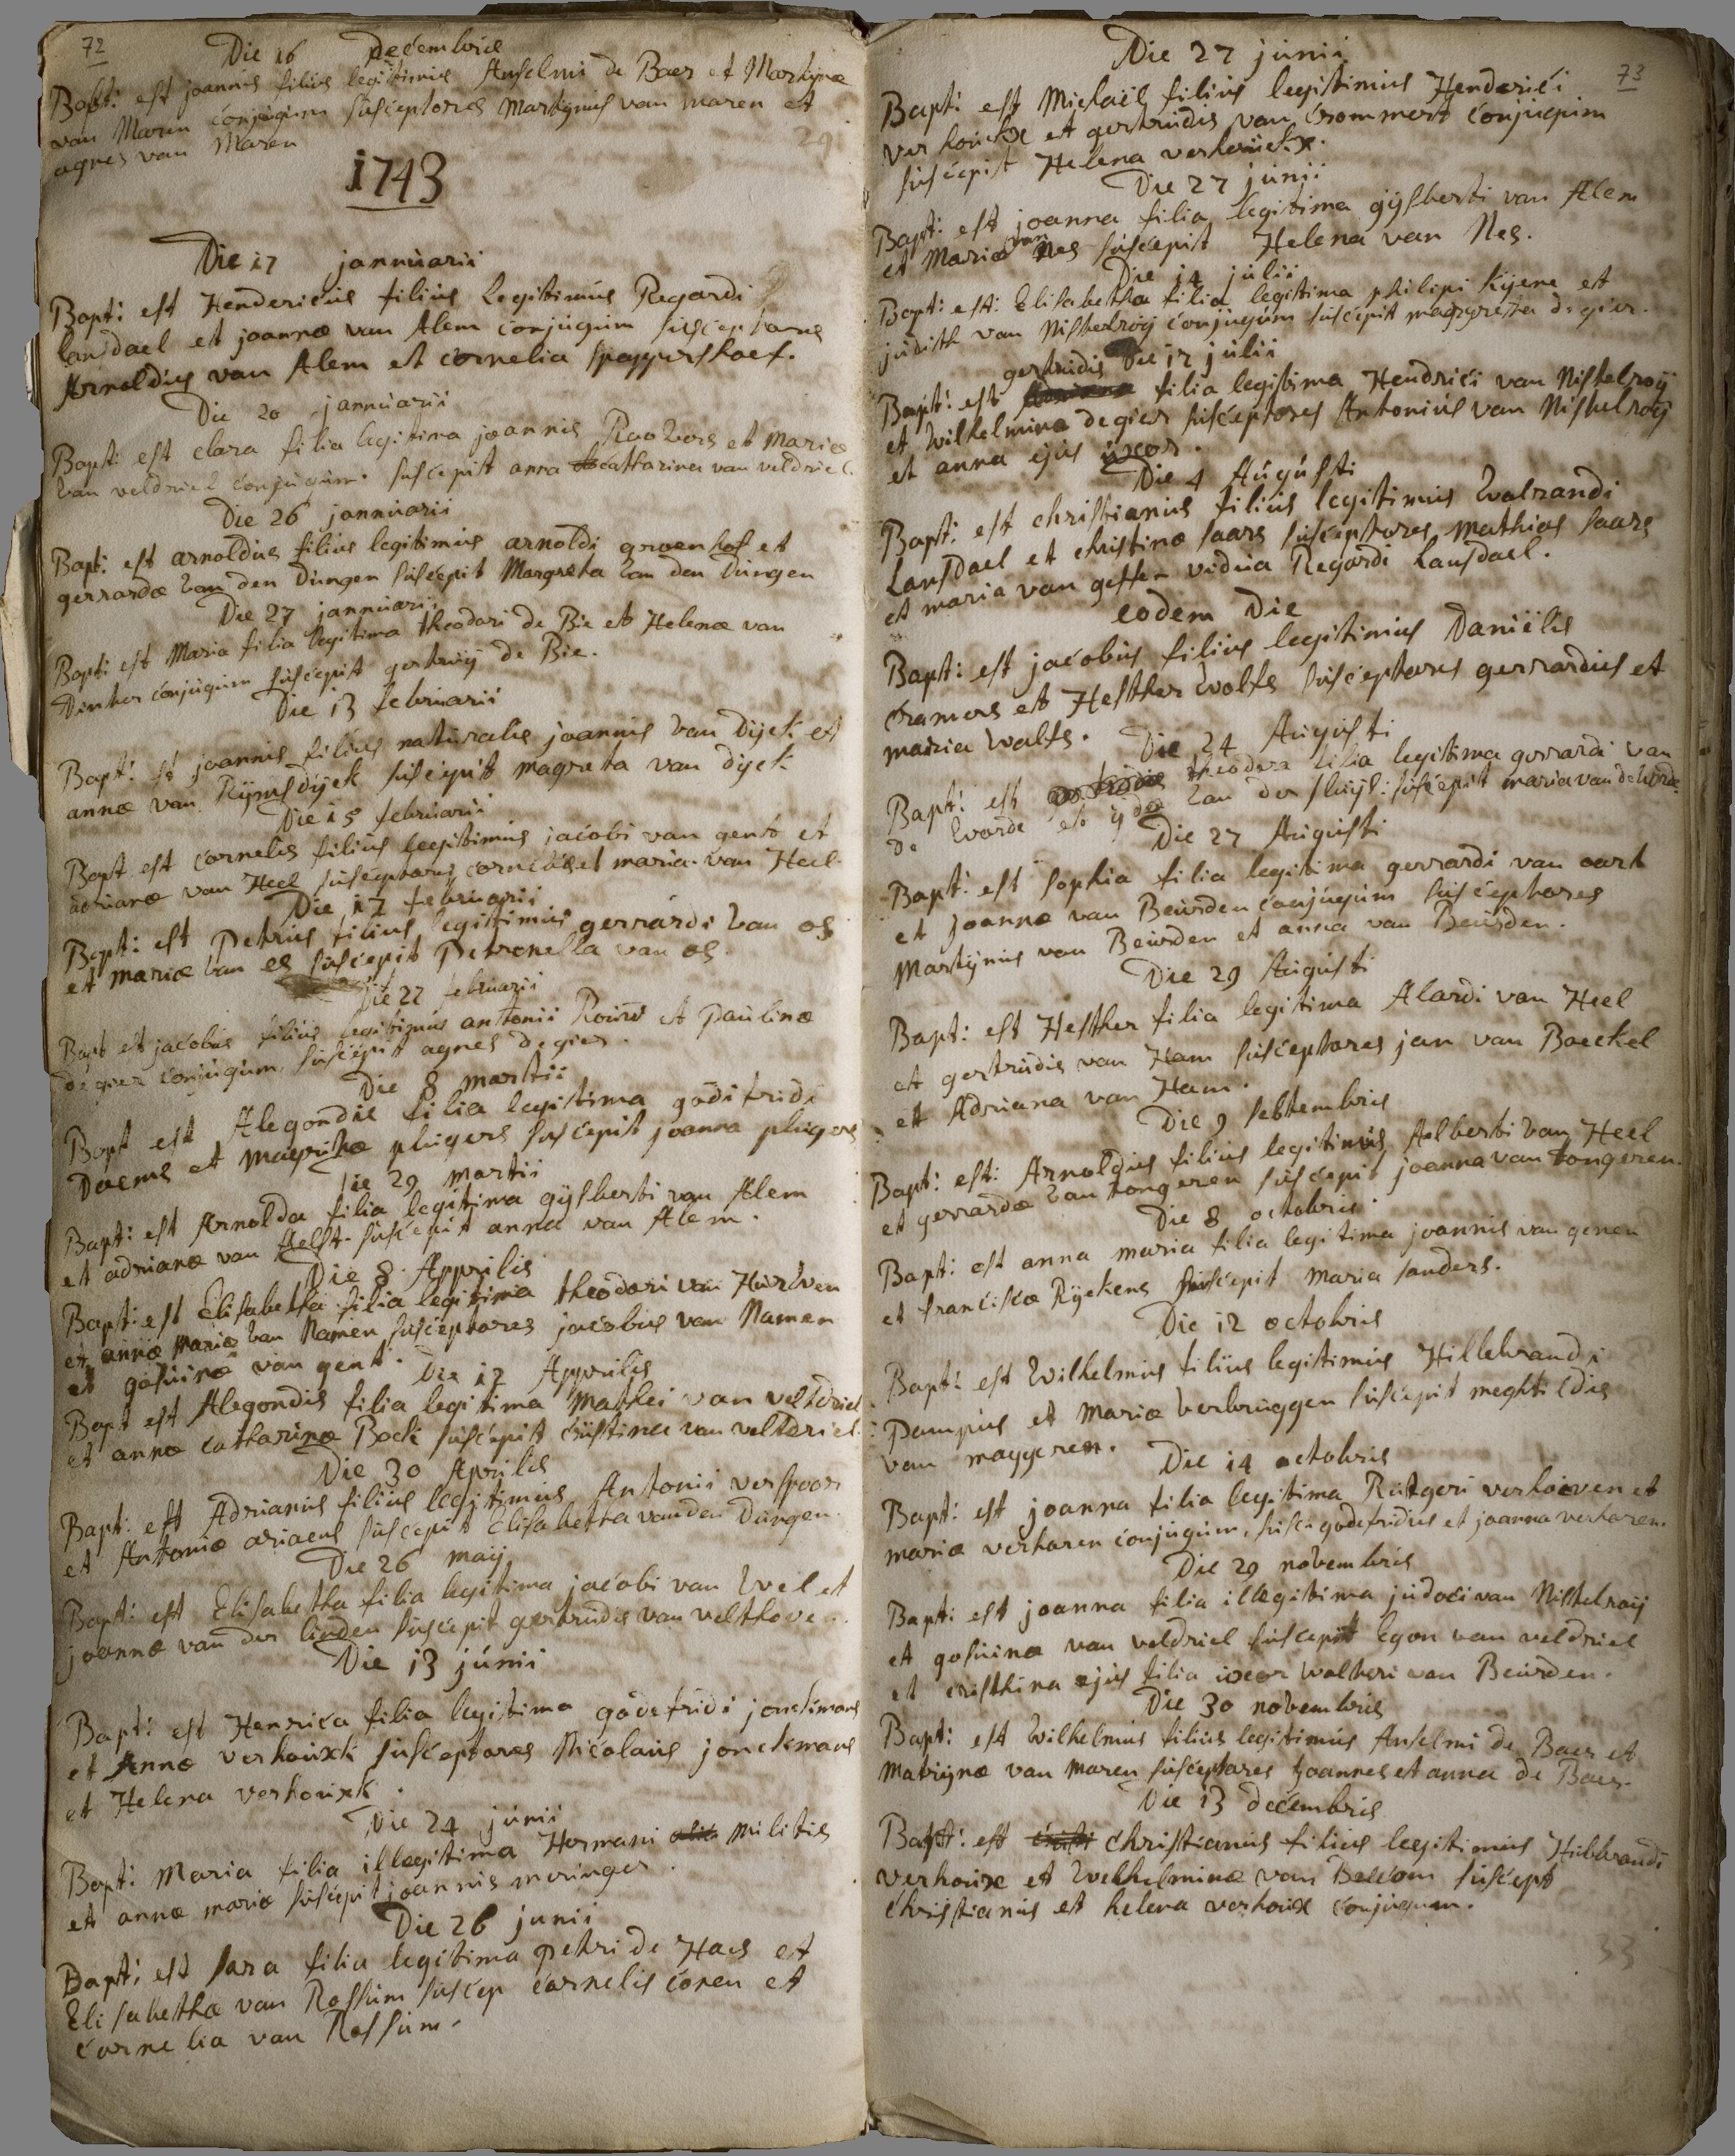 72
Die 16 Decembris
Bapt: est joannis filius legitimus Anselmi de Baer et Martynæ
van Maren conjugum susceptores Martynus van maren et
agnes van Maren
29
1743
Die 17 jannuarii
Bapt: est Hendericus filius Legitimus Regardi
lansdael et joannæ van Alem conjugum susceptores
Arnoldus van Alem et cornelia
Die 20 jannuarii
Bapt: est clara filia legitima joannis Roovers et mariæ
van veldriel conjugum. suscepit anna catharina van veldriel.
Die 26 jannuarii
Bapt: est arnoldus filius legitimus arnoldi groenhof et
gerrardæ van den Dungen suscepit Margreta van den Dungen
Die 27 jannuarii
Bapt: est Maria filia legitima theodori de Bie et Helenæ van
Dinter conjugum suscepit gertruij de Bie.
Die 13 februarii
Bapt: st joannis filius naturalis joannis van Dijck et
annæ van Rijnsdijck suscepit magreta van dijck
Die 15 februarii
Bapt est cornelis filius legitimus jacobi van gent et
adrianæ van Heel susceptores cornelis et maria van Heel.
Die 17 februarii
Bapt: est Petrus filius legitimus gerrardi van os
et mariæ van es suscepit Petronella van os.
Die 22 februarii
Bapt est jacobus filius legitimus antonii et paulinæ
de gier conjugum suscepit agnes de gier.
Die 8 martii
Bapt est Alegondis filia legitima godifridi
Daems et magritæ plugers suscepit joanna plugers
Die 29 martii
Bapt: est Arnolda filia legitima gijsberti van Alem
et adrianæ van Aelst. suscepit anna van Alem.
Die 8 Apprilis
Bapt: est Elisabetha filia legitima theodori van Hurven
et annæ mariæ van Namen susceptores jacobus van Namen
et gosuina van gent.
Die 12 Apprilis
Bapt est Alegondis filia legitima Mathei van veltdriel
et annæ catharinæ Bock suscepit cristina van veltdriel.
Die 30 Aprilis
Bapt: est Adrianus filius legitimus Antonii verspoor
et Antoniæ ariaens suscepit Elisabetha van den Dungen.
Die 26 maij
Bapt: est Elisabetha filia legitima jacobi van wel et
joannæ van der linden suscepit gertrudis van velthoven.
Die 13 junii
Bapt: est Henrica filia legitima godefridi jonckmans
et Annæ verhouxk susceptores Nicolaus jonckmans
et Helena verhouxk.
Die 24 junii
Bapt: Maria filia illegitima Hermani militis
et annæ mariæ suscepit joannis meringer.
Die 26 junii
Bapt: est sara filia legitima petri de Haes et
Elisabethæ van Rossum suscep cornelis coren et
cornelia van Rossum.
73
Die 27 junii
Bapt: est Michaël filius legitimus Henderici
verhouckx et gertrudis van crommert conjugum
suscepit Helena verhouckx.
Die 27 junii
Bapt: est joanna filia legitima gijsberti van Alem
et Mariæ van Nes suscepit Helena van Nes.
Die 14 julii
Bapt: est: Elisabetha filia legitima philipi kijene et
judith van Nistelroij conjugum suscepit magreta de gier.
Die 17 julii
Bapt: est gertrudis filia legitima Hendrici van Nistelroij
et wilhelmina de gier susceptores Antonius van Nistelroij
et anna ejus uxor.
Die 4 Augusti
Bapt: est christianus filius legitimus walrandi
Lansdael et christinæ saars susceptores mathias saars
et maria van geffen vidua Regardi Lansdael.
eodem Die
Bapt: est jacobus filius legitimus Daniëlis
cramers et Hesther wolfs susceptores gerrardus et
maria wolfs.
Die 24 Augusti
Bapt: est theodora filia legitima gerrardi van
de worde et ijda van der sluijs: suscepit maria van de worde.
Die 27 Augusti
Bapt: est sophia filia legitima gerrardi van oort
et joannæ van Beurden conjugum susceptores
Martijnus van Beurden et anna van Beurden.
Die 29 Augusti
Bapt: est Hesther filia legitima Alardi van Heel
et gertrudis van Ham susceptores jan van Boeckel
et Adriana van Ham.
Die 9 sebtembris
Bapt: est: Arnoldus filius legitimus Aelberti van Heel
et gerrardæ van tongeren suscepit joanna van tongeren.
Die 8 octobris
Bapt: est anna maria filia legitima joannis van genen
et francisca Rijckens suscepit maria sanders.
Die 12 octobris
Bapt: est wilhelmus filius legitimus Hillebrandi
Pampus et Mariæ verbruggen suscepit meghtildis
van maggeren.
Die 14 octobris
Bapt: est joanna filia legitima Rutgeri verhoeven et
mariæ verharen conjugum, susce: godefridus et joanna verharen.
Die 29 novembris
Bapt: est joanna filia illegitima judoci van Nistelroij
et gosuina van veldriel suscepit Egon van veldriel
et cristhina ejus filia uxor walteri van Beurden.
Die 30 novembris
Bapt: est wilhelmus filius legitimus Anselmi de Baer et
Matrijnæ van Maren susceptores joannes et anna de Baer.
Die 13 decembris
Bapt: est christianus filius legitimus Hilbrandi
verhoux et welhelminæ van Balcom suscept
christianus et helena verhoux conjugum.
33